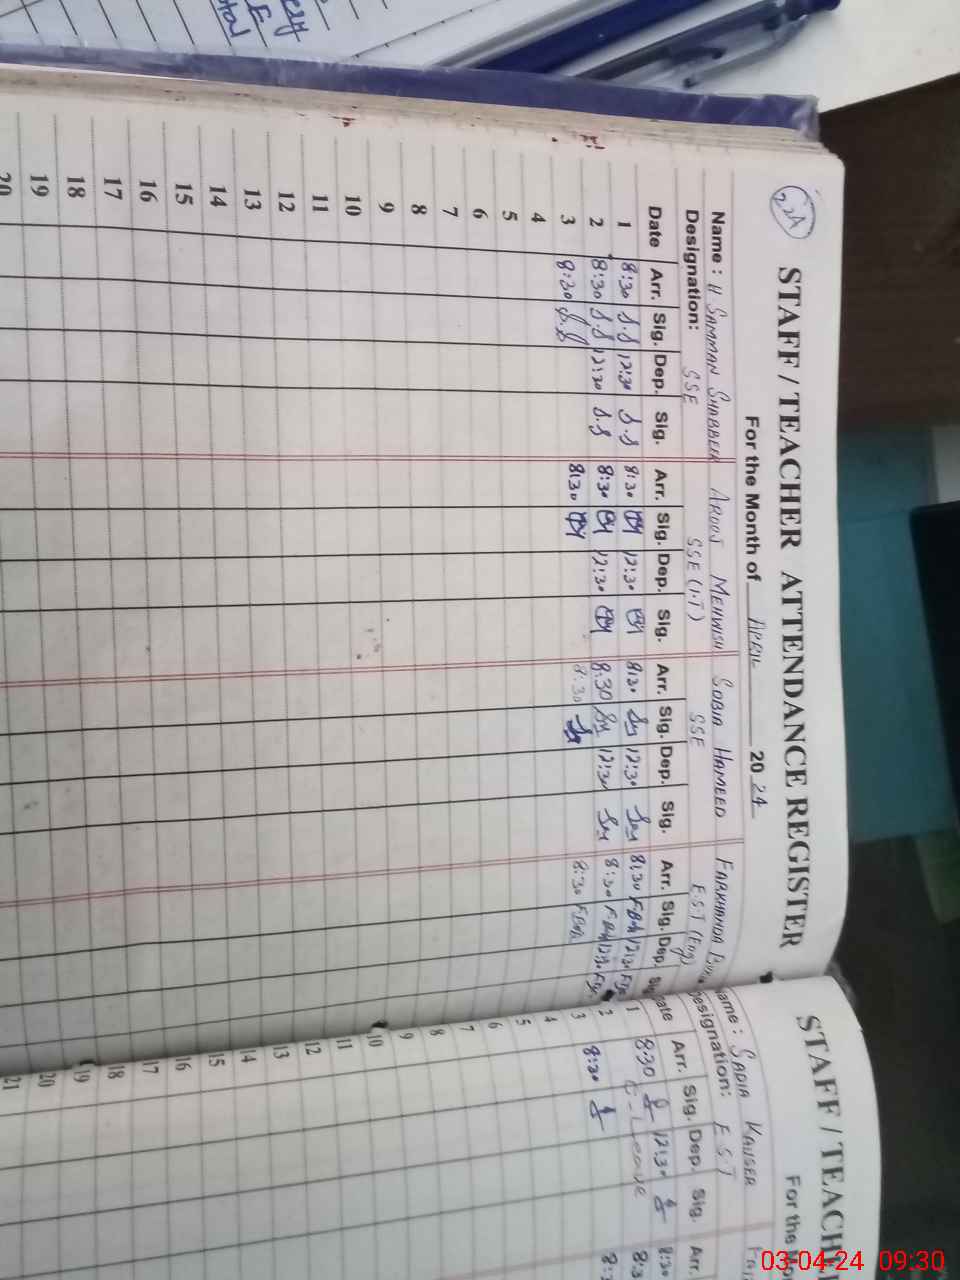 22A
STAFF / TEACHER ATTENDANCE REGISTER
For the Month of APRIL 2024
Name : H SAMMAN SHABBEIR AROOJ MEHWISH SOBIA HAMEED FARKHANDA
Designation: SSE SSE (I.T) SSE E.S.T (Eng)
Date Arr. Sig. Dep. Sig. Arr. Sig. Dep. Sig. Arr. Sig. Dep. Sig. Arr. Sig. Dep. Sig.
1 8:30 S.S 12:30 S.S 8:30 12:30 8:30 12:30 8:30 12:30
2 8:30 S.S 12:30 S.S 8:30 12:30 8:30 12:30 8:30 12:30
3 8:30 S.S 8:30 8:30 8:30
4
5
6
7
8
9
10
11
12
13
14
15
16
17
18
19
20
STAFF / TEACHE
For the Mo
ame : SADIA KAUSER
esignation: E.S.T
ate Arr. Sig. Dep. Sig. Arr.
1 8:30 12:30 8:30
2 C-Leave 8:3
3 8:30
4
5
6
7
8
9
10
11
12
13
14
15
16
17
18
19
20
21
03-04-24 09:30